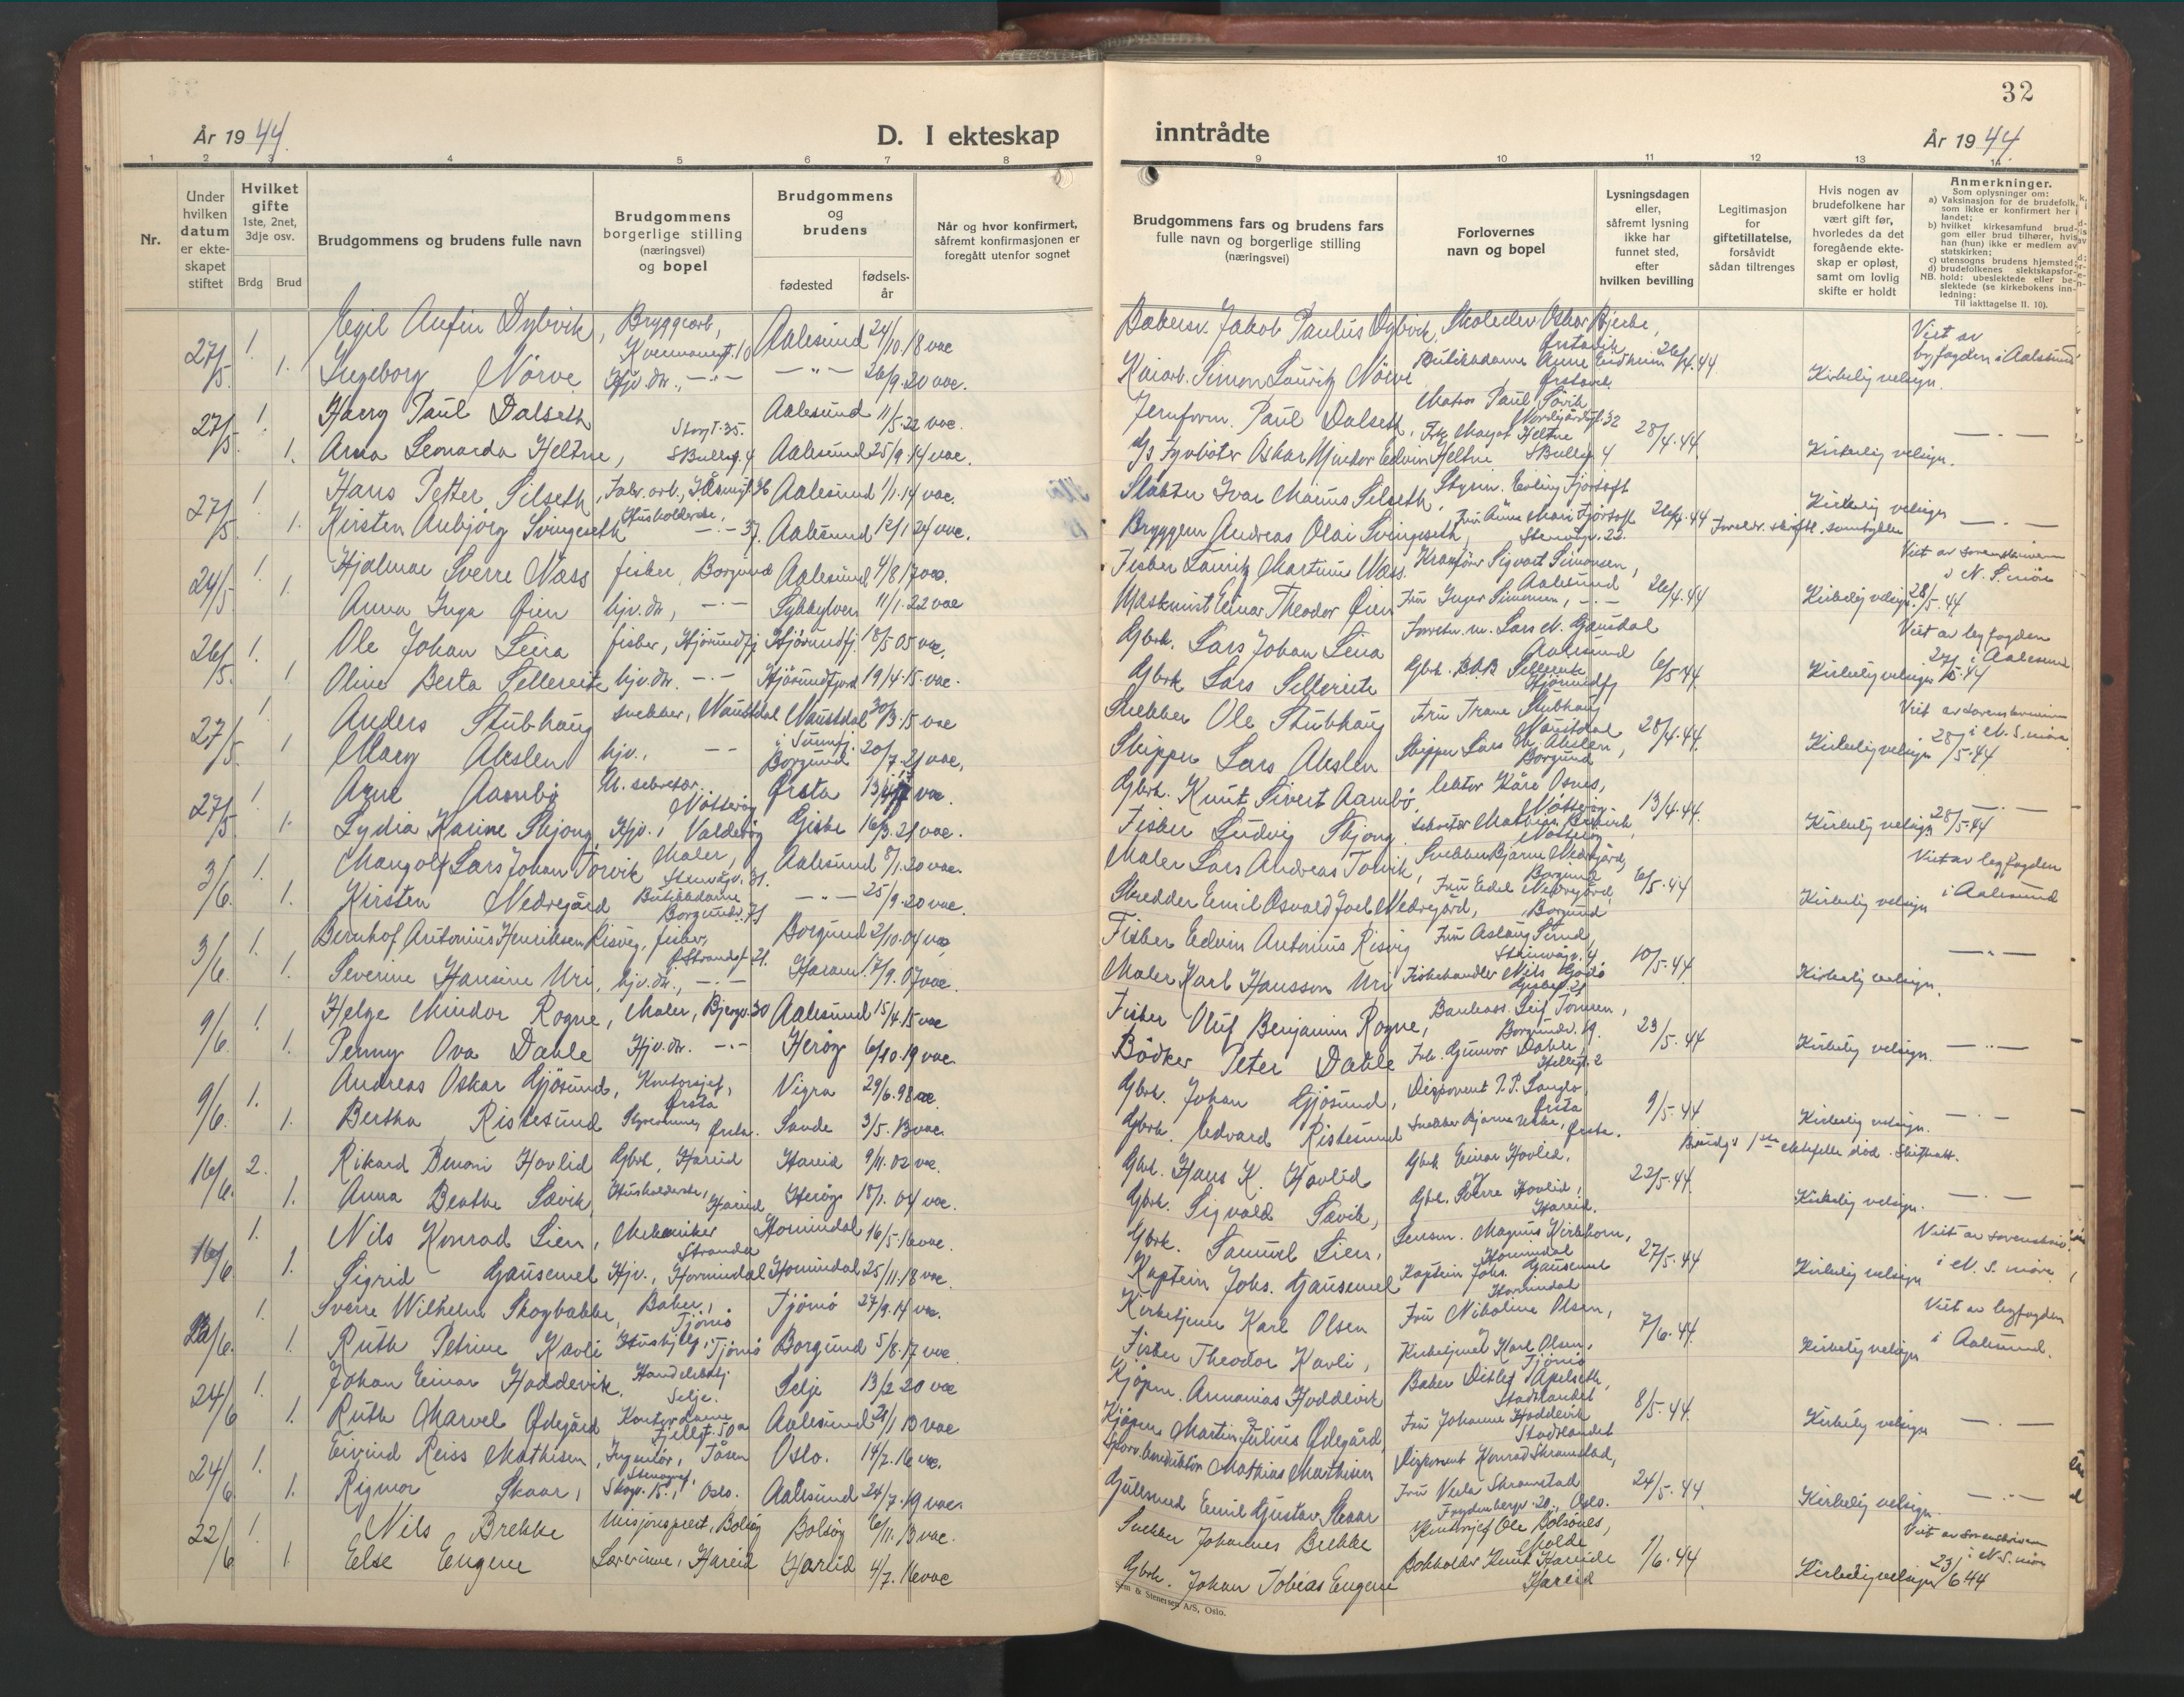 32
År 1944.
D. I ekteskap
inntrådte
År 1944
1 2 3 4 5 6 7 8 9 10 11 12 13 14
Nr.
Under hvilken datum er ekteskapet stiftet
Hvilket gifte 1ste, 2net, 3dje osv.
Brdg Brud
Brudgommens og brudens fulle navn
Brudgommens borgerlige stilling (næringsvei) og bopel
Brudgommens og brudens
fødested
fødsels-år
Når og hvor konfirmert, såfremt konfirmasjonen er foregått utenfor sognet
Brudgommens fars og brudens fars fulle navn og borgerlige stilling (næringsvei)
Forlovernes navn og bopel
Lysningsdagen eller, såfremt lysning ikke har funnet sted, efter hvilken bevilling
Legitimasjon for giftetillatelse, forsåvidt sådan tiltrenges
Hvis nogen av brudefolkene har vært gift før, hvorledes da det foregående ekteskap er opløst, samt om lovlig skifte er holdt
Anmerkninger.
Som oplysninger om:
a) Vaksinasjon for de brudefolk, som ikke er konfirmert her i landet;
b) hvilket kirkesamfund brudgom eller brud tilhører, hvis han (hun) ikke er medlem av statskirken;
c) utensogns brudens hjemsted;
d) brudefolkenes slektskapsforhold: ubeslektede eller beslektede (se kirkebokens innledning:
NB.
Til iakttagelse II. 10).
27/5. 1. Egil Anfin Dybvik, Bryggearb., Aalesund 24/10.18 vac Jakob Paulus Dybvik, Skoleder Oskar Bjerke, Ørstavik Viet av byfogden i Aalesund
1. Ingeborg Nörve Hjv. dtr., -"- -"- 26/9.20 vac. Kaiarb. Simon Lauritz Nörve Butikkdame Anne Eidheim Ørstavik 26/4.44 Kirkelig velsign.
27/5. 1. Harry Paul Dalseth Storgt. 35. Aalesund 11/5.22 vac. Jernform. Paul Dalseth, Matros Paul Sövik 28/4.44. -"-
1. Anna Leonarda Heltne, S Bulleg. 4 Aalesund 25/9.14 vac. Fyrböter Oskar Mindor Edvin Heltne Frk. Margot Heltne S Bulleg 4 Kirkelig velsign.
27/5. 1. Hans Petter Silseth, Fabr. arb., Aalesund 1/1.14 vac. Slakter Ivar Marius Silseth, Styrm. Erling Fjörtoft Kirkelig velsign -"-
1. Kirsten Anbjörg Svingeseth Husholderske, -"- 37. Aalesund 12/1 24 vac. Bryggem Andreas Olai Svingeseth, Fru Anne Marie Fjörtoft Stenvågv. 22. 26/4.44 Foreldr. skriftl. samtykke
24/5. 1. Hjalmar Sverre Næss fisker, Borgund Aalesund 4/8.17 vac. Fisker Lauritz Martinus Næss. Kranförer Sigvart Simonsen, Aalesund 26/4.44 Viet av sorenskriveren i N. S.möre
1. Anna Inga Öien hjv. dtr, -"- Sykkylven 11/1.22 vac Maskinist Einar Theodor Öien Fru Inger Simonsen, -"- Kirkelig velsign 28/5.44
26/5. 1. Ole Johan Leira fisker, Hjörundfj Hjörundfj. 18/5 05 vac. Gbrk. Lars Johan Leira Forretn.m. Lars N. Gausdal Aalesund 6/5.44 Viet av byfogden i Aalesund
1. Oline Berta Sellereite hjv. dtr. -"- Hjörundfjord 19/4.15 vac. Gbrk Lars Sellereite Gbrk. B.A.B Sellereite Hjörundfj Kirkelig velsign 27/5.44
27/5. 1. Anders Stubhaug snekker, Naustdal Naustdal i Sunnfj. 30/3.15 vac Snekker Ole Stubhaug Fru Trane Stubhaug Naustdal 28/4.44. Viet av sorenskriveren i N. S.möre
1. Mary Akslen hjv., -"- Borgund 20/7.21 vac. Skipper Lars Akslen Skipper Lars M. Akslen, Borgund Kirkelig velsign 28/5.44
27/5 1. Arne Aambö U. sekretær. Nötteröy Ørsta vac. Gbrk. Knut Sivert Aambö, lektor Kåre Osnes, Nötteröy 13/4.44. -"-
1. Lydia Karine Skjong, Hjv., Valderöy Giske 16/3.21 vac. Fisker Ludvig Skjong Nötteröy Kirkelig velsign 28/5.44
3/6. 1. Mangolf Lars Johan Torvik Maler, Stenvågv. 31. Aalesund 8/1.20 vac. Maler Lars Andreas Torvik, Snekker Bjarne Nedregård, Borgund 6/5.44 Viet av byfogden i Aalesund
1. Kirsten Nedregård Butikkdame Borgundv. 71 -"- 25/9.20 vac. Skredder Emil Osvald Joel Nedregård, Fru Edel Nedregård, Borgund Kirkelig velsign
3/6. 1. Bernhof Antonius Henriksen Risvig, fisker, Borgund 2/10.04 vac Fisker Edvin Antonius Risvig Fru Aslaug Strid Steinvågv. 4 10/5.44. -"-
1. Severine Hansine Uri, hjv. dtr., -"- Haram 17/9.07 vac. Maler Karl Hansson Uri Fiskehandler Nils Godö Kirkelig velsign.
9/6. 1. Helge Mindor Rogne, Maler, Bjergv. 30 Aalesund 15/4.15 vac Fisker Oluf Benjamin Rogne, Bankass. Leif Tonnen, Borgundv. 19. 23/5.44
1. Penny Ova Dahle Hjv. dtr. -"- Heröy 6/10.19 vac. Bödker Peter Dahle Frk. Gunvor Dahle, Helleg. 2 Kirkelig velsign. -"-
9/6. 1. Andreas Oskar Gjösund, Kontorsjef, Ørsta Vigra 29/6.98 vac. Gbrk. Johan Gjösund, Disponent P.P. Langlo, Ørsta 9/5.44
1. Bertha Ristesund Ørsta. Sande 3/5.13 vac. Gbrk. Edvard Ristesund Snekker Bjarne Urke, Ørsta. Kirkelig velsign. -"-
16/6. 2. Rikard Benoni Hovlid Gbrk, Hareid Hareid 9/11.02 vac. Gbrk. Hans K. Hovlid Gbrk Einar Hovlid, 22/5.44. Brudg's 1ste ektefelle död. Skifteatt.
1. Anna Berthe Sævik, Husholderske, Hareid Heröy 18/1.04 vac. Gbrk. Sigvald Sævik, Gbrk. Sverre Hovlid, Hareid. Kirkelig velsign. -"-
16/6 1. Nils Konrad Lien, Mekaniker Stranda Hornindal 16/5.16 vac. Gbrk. Samuel Lien, Lensm. Magnus Kirkhorn, Hornindal 27/5.44 Viet av sorenskriv. i N. S. möre
1. Sigrid Gausemel Hjv., Hornindal Hornindal 25/11.18 vac. Kaptein Johs. Gausemel Kaptein Johs. Gausemel Hornindal Kirkelig velsign
22/6. 1. Sverre Wilhelm Skogbakke, Baker, Tjömö Tjömö 27/9.14 vac. Kirketjener Karl Olsen Fru Nikoline Olsen, 7/6.44 Viet av byfogden i Aalesund.
1. Ruth Petrine Kavli Hushjelp, Tjömö Borgund 5/8.17 vac. Fisker Theodor Kavli, Kirketjener Karl Olsen, Tjömö Kirkelig velsign
24/6 1. Johan Einar Hoddevik, Handelsbetj. Selje. Selje 13/2 20 vac Kjöpm. Annanias Hoddevik Baker Ditlef Apelseth, Stadtlandet 8/5.44.
1. Ruth Marvel Ödegård Kontordame Fjellgt. 50a Aalesund 1 13 vac Kjöpm. Martin Julius Ödegård, Fru Johanne Hoddevik Stadtlandet Kirkelig velsign -"-
24/6 1. Eivind Reiss Mathisen, Ingeniör, Tåsen Oslo. 14/7.16 vac. Mathias Mathisen Disponent Konrad Skramstad, 24/5.44
1. Rigmor Skaar, Stenograf, Skogv. 15., Oslo. Aalesund 24/7.19 vac. Gullsmed Emil Gustav Skaar Fru Vesla Skramstad Frydenbergv. 20., Oslo. Kirkelig velsign. -"-
22/6 1. Nils Brekke Misjonsprest, Bolsöy Bolsöy 6/11.13 vac. Snekker Johannes Brekke Kontorsjef Ole Bolsönes, Molde 1/6.44 Viet av sorenskriveren i N. S. möre
1. Else Eugene Lærerinne, Hareid Hareid 4/7.16 vac Gbrk. Johan Tobias Eugene Bokholder Knut Hareide Hareid Kirkelig velsign 23/6 44
Sem & Stenersen A/S, Oslo.